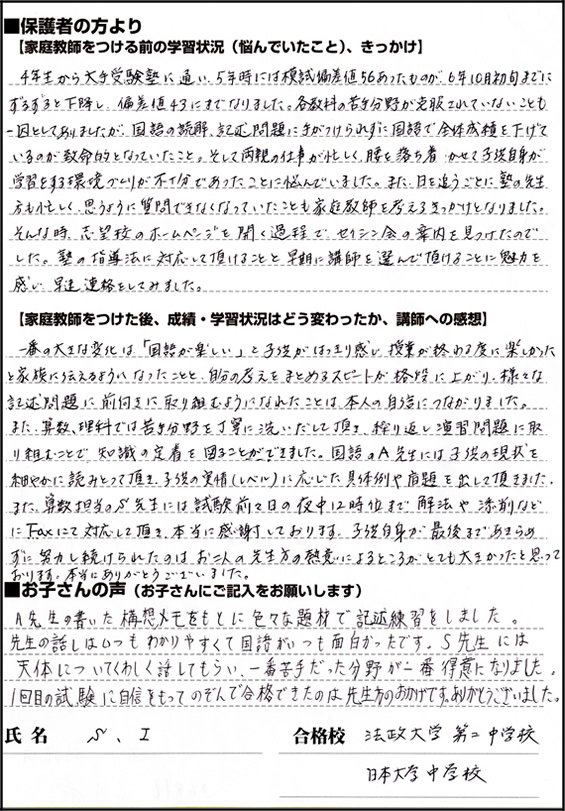 ■保護者の方より
【家庭教師をつける前の学習状況（悩んでいたこと）、きっかけ】
4年生から大手受験塾に通い、5年時には模試偏差値56あったものが、6年10月初旬までに
ずるずると下降し、偏差値43にまでなりました。各教科の苦手分野が克服されていないことも
一因としてありましたが、国語の読解、記述問題に手がつけられずに国語で全体成績を下げて
いるのが致命的となっていたこと。そして両親の仕事が忙しく、腰を落ち着かせて子供自身が
学習をする環境づくりが不十分であったことに悩んでいました。また、日を追うごとに塾の先生
方も忙しく、思うように質問できなくなっていたことも家庭教師を考えるきっかけとなりました。
そんな時、志望校のホームページを開く過程で、セイシン会の案内を見つけたので
した。塾の指導法に対応して頂けることと早期に講師を選んで頂けることに魅力を
感じ、早速連絡をしてみました。
【家庭教師をつけた後、成績・学習状況はどう変わったか、講師への感想】
一番の大きな変化は「国語が楽しい」と子供がはっきり感じ、授業が終わる度に楽しかった
と家族に伝えるようになったことと、自分の考えをまとめるスピードが格段に上がり、様々な
記述問題に前向きに取り組むようになれたことは、本人の自信につながりました。
また、算数、理科では苦手分野を丁寧に洗いだして頂き、繰り返し演習問題に取
り組むことで、知識の定着を図ることができました。国語のA先生には子供の現状を
細やかに読みとって頂き、子供の実情(レベル)に応じた具体例や宿題を出して頂きました。
また、算数担当のS先生には試験前々日の夜中12時位まで解法や添削など
にFaxにて対応して頂き、本当に感謝しております。子供自身が最後まであきらめ
ずに努力し続けられたのはお二人の先生方の熱意によるところがとても大きかったと思って
おります。本当にありがとうございました。
■お子さんの声（お子さんにご記入をお願いします）
A先生の書いた構想メモをもとに色々な題材で記述練習をしました。
先生の話しはいつもわかりやすくて国語がいつも面白かったです。S先生には
天体についてくわしく話してもらい、一番苦手だった分野が一番得意になりました。
1回目の試験に自信をもってのぞんで合格できたのは先生方のおかげです。ありがとうございました。
氏名 S、I
合格校 法政大学第二中学校
日本大学中学校